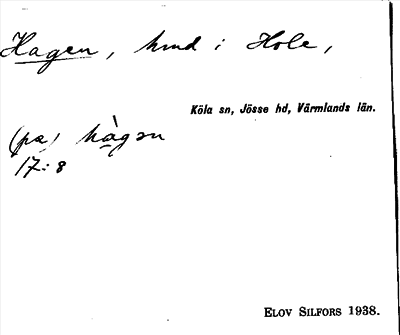 Hagen, hmd i Hole,
Köla sn, Jösse hd, Värmlands län.
(pa) hàgɜn
17:8
ELOV SILFORS 1938.